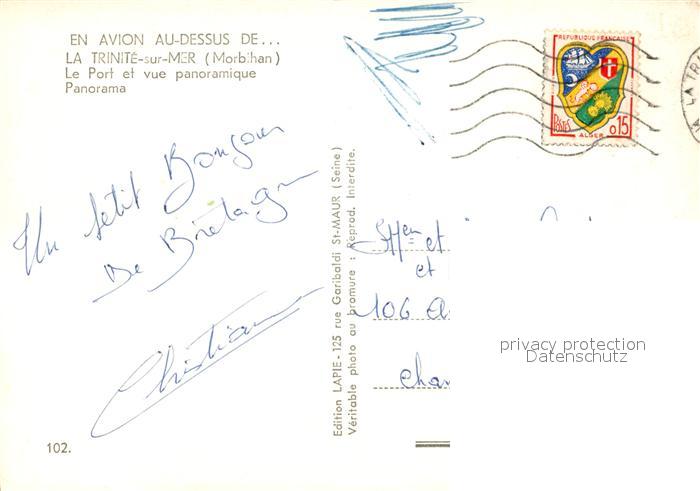 EN AVION AU-DESSUS DE...
LA TRINITÉ-sur-MER (Morbihan)
Le Port et vue panoramique
Panorama
RÉPUBLIQUE FRANÇAISE
POSTES
ALGER
0,15
LA TRI
Un petit Bonjour
De Bretagne
Christian
102.
Edition LAPIE - 125 rue Garibaldi St-MAUR (Seine)
Véritable photo au bromure : Reprod. Interdite.
et
et
106 A
Cha
privacy protection
Datenschutz